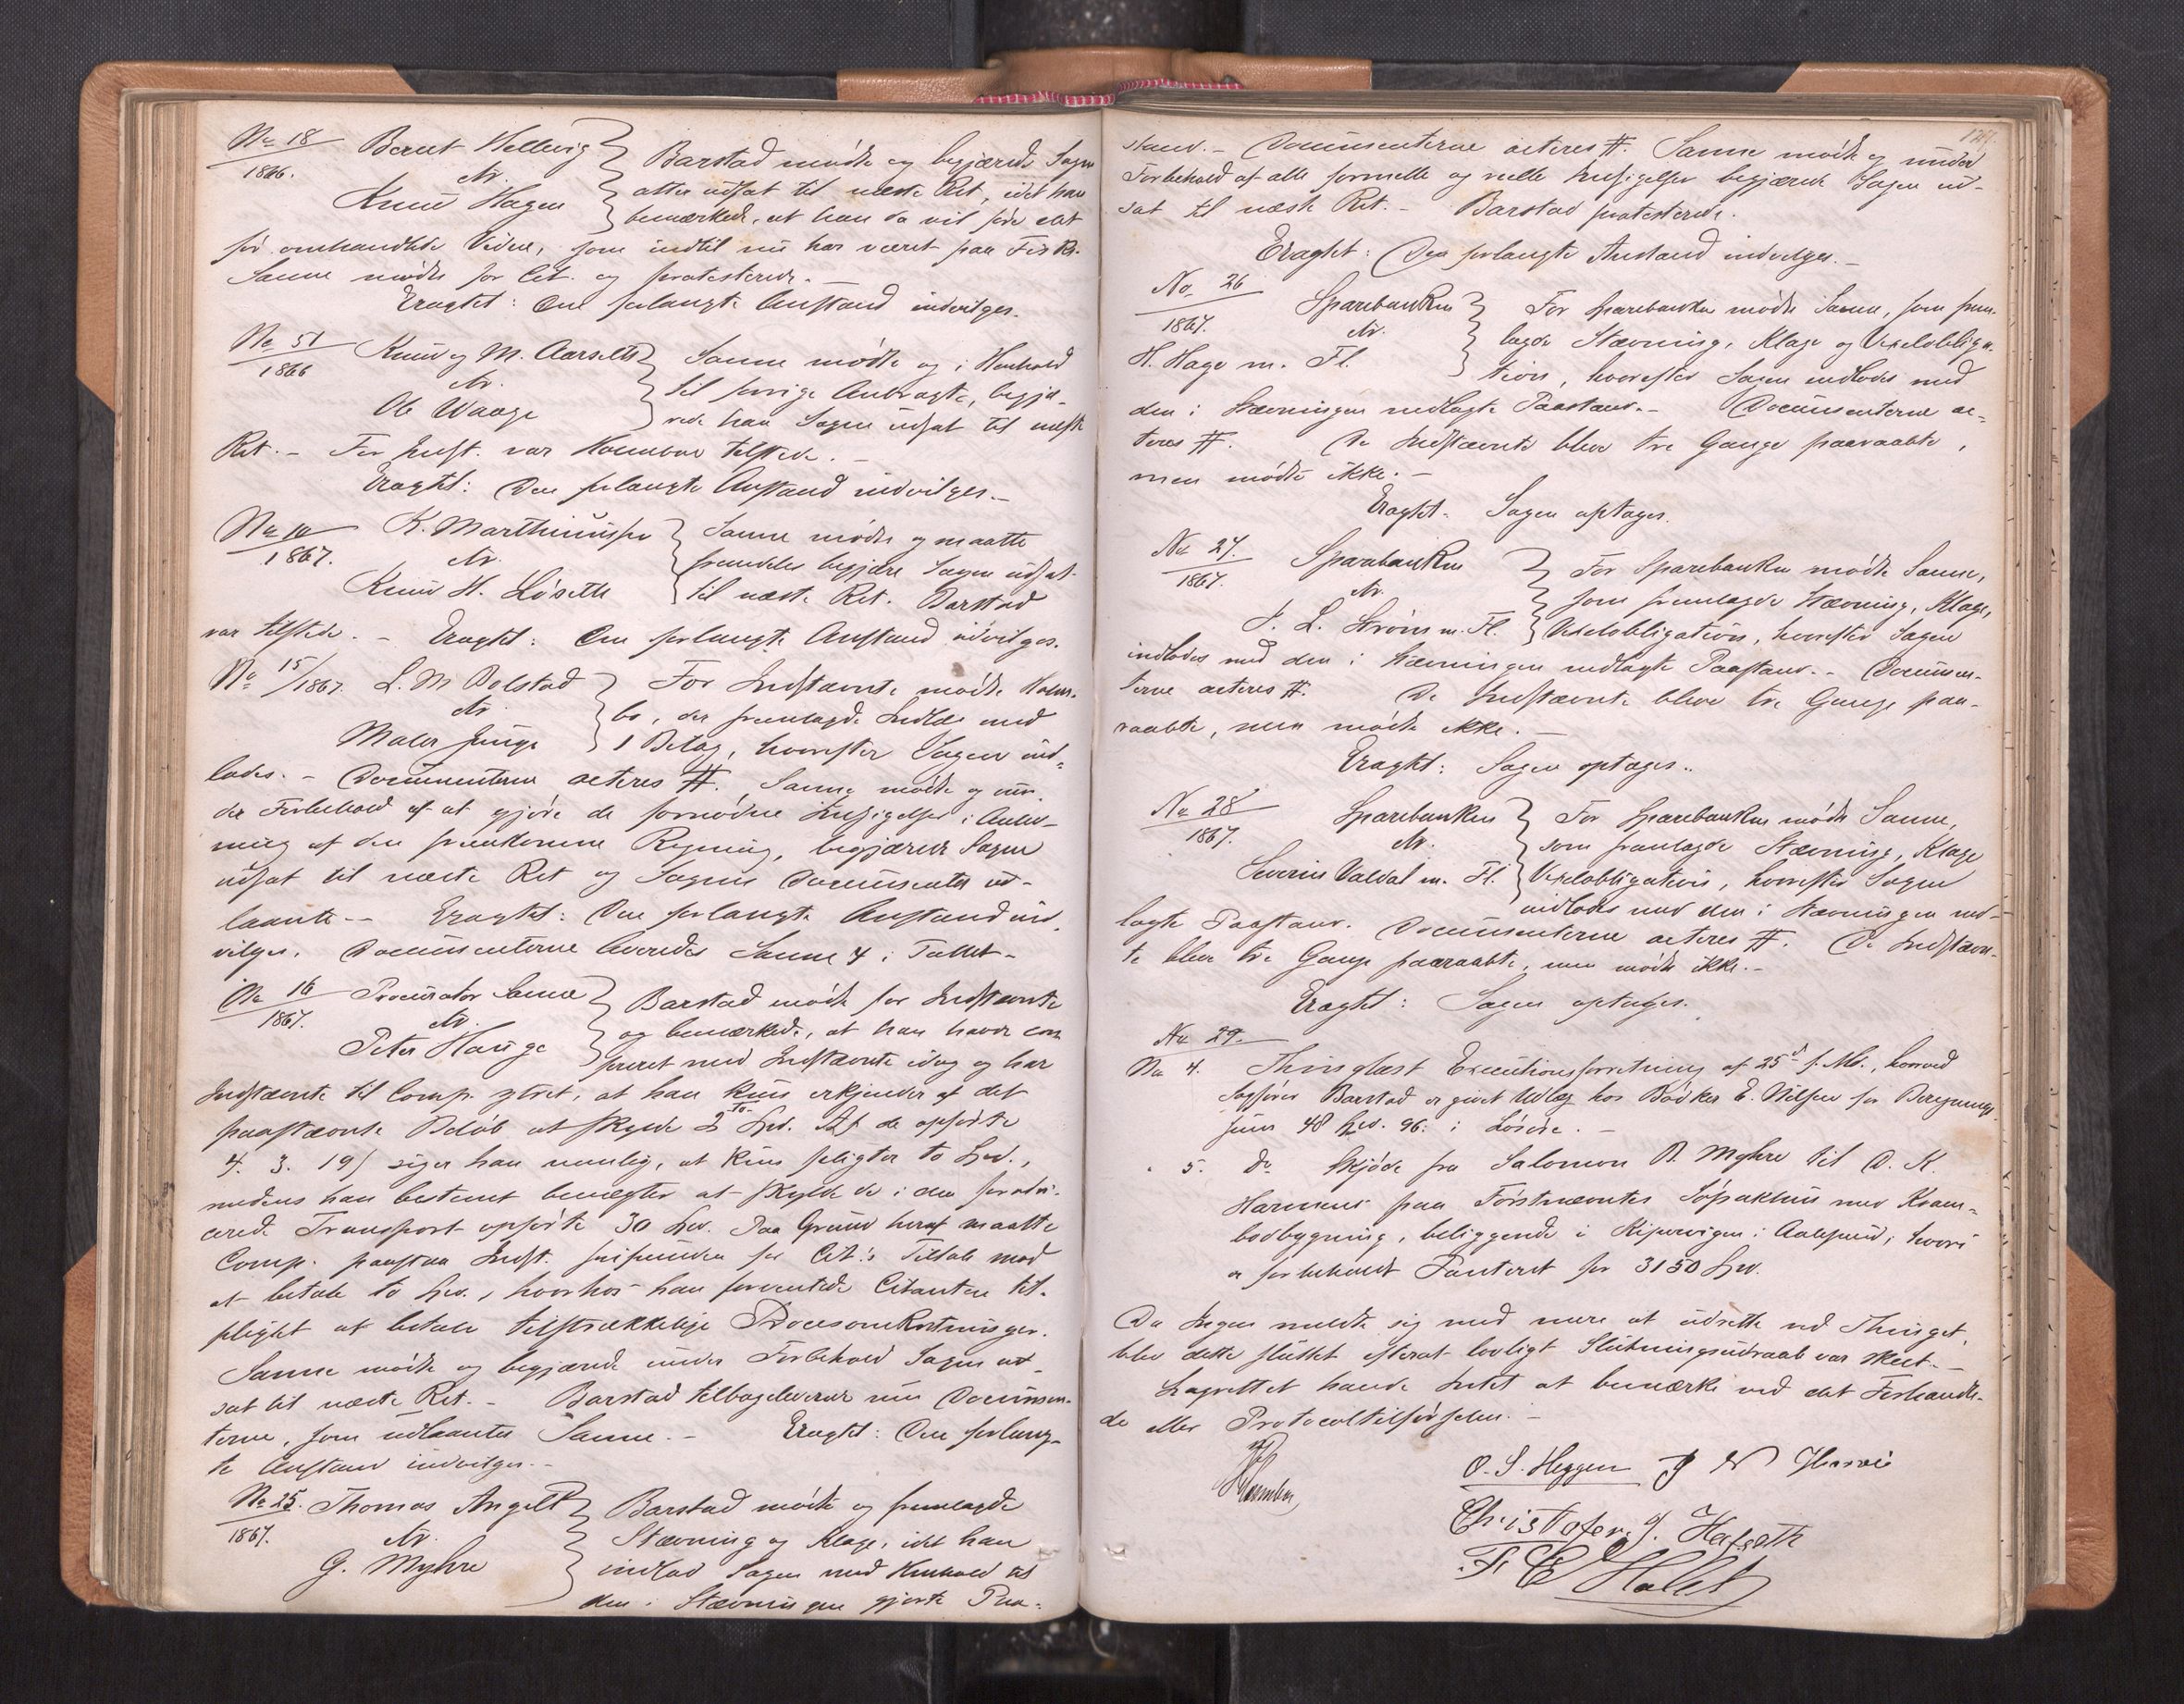 No 18
1866.
Bernt Hellevig
ctr.
Knud Hagen
Barstad mødte og begjærede Sagen
atter udsat til næste Ret, idet han
bemærkede, at han da vil føre det
før omhandlede Vidne, som indtil nu har været paa Fiske.
Sanne mødte for Cit. og protesterede.-
Eragtet: Den forlangte Anstand indvilges.
No 51
1866
Knud og M. Aarseth
ctr.
Ole Waage
Sanne mødte og i Henhold
til forrige Anbragte, begjæ-
rede han Sagen udsat til næste
Ret.- For Indst. var Holmboe tilstede.-
Eragtet: Den forlangte Anstand indvilges.-
No 10
1867.
K. Marthinussen
ctr.
Knud H. Løseth
Sanne mødte og maatte
fremdeles begjære Sagen udsat
til næste Ret. Barstad
var tilstede.- Eragtet: Den forlangte Anstand indvilges.
No 15/1867.
L. M Dolstad
ctr
Maler Junge
For Indstævnte mødte Holm-
bo, der fremlagde Indlæg med
1 Bilag, hvorefter Sagen ind-
lodes.- Documenterne acteres #. Sanne mødte og un-
der Forbehold af at gjøre de fornødne Indsigelser i Anled-
ning af den fremkomne Regning, begjærede Sagen
udsat til næste Ret og Sagens Documenter ud-
laante.- Eragtet: Den forlangte Anstand ind-
vilges. Documenterne leveredes Sanne 4 i Tallet.-
No 16
1867.
Procurator Sanne
ctr.
Peter Hauge
Barstad mødte for Indstævnte
og bemærkede, at han havde con-
fereret med Indstævnte idag og har
Indstævnte til Comp. ytret, at han kun erkjender af det
paastævnte Beløb at skylde 2 To Spd. Af de opførte
4. 3. 19 s siger han nemlig, at kun pligter to Spd.,
medens han bestemt benægter at skylde de i den
Transport opførte 30 Spd. Paa Grund heraf maatte
Comp. paastaa Indst. frifunden for Cit.s Tiltale mod
at betale to Spd., hvorhos han formentede Citanten til-
pligtet at betale tilstrækkelige Procesomkostninger.
Sanne mødte og begjærede under Forbehold Sagen ud-
sat til næste Ret.- Barstad tilbageleverede nu Documen-
terne, som udlaantes Sanne.- Eragtet: Den forlang-
te Anstand indvilges.-
No 25.
1867.
Thomas Angell
ctr.
G. Myhre
Barstad mødte og fremlagde
Stævning og Klage, idet han
indlod Sagen med Henhold til
den i Stævningen gjorte Paa-
stand.- Documenterne acteres #. Sanne mødte og under
Forbehold af alle formelle og reelle Indsigelser begjærede Sagen ud-
sat til næste Ret.- Barstad protesterede.
Eragtet: Den forlangte Anstand indvilges.-
No. 26
1867.
Sparebanken
ctr.
H. Hage m. Fl.
For Sparebanken mødte Sanne, som frem-
lagde Stævning, Klage og Vexelobliga-
tion, hvorefter Sagen indlodes med
den i Stævningen nedlagte Paastand.- Documenterne ac-
teres #. De Indstævnte bleve tre Gange paaraabte,
men mødte ikke.-
Eragtet. Sagen optages.
No 27.
1867.
Sparebanken
ctr.
J. L. Strøm m. Fl.
For Sparebanken mødte Sanne,
som fremlagde Stævning, Klage,
Vexelobligation, hvorefter Sagen
indlodes med den i Stævningen nedlagte Paastand.- Documen-
terne acteres #. De Indstævnte bleve tre Gange paa-
raabte, men mødte ikke.-
Eragtet: Sagen optages..
No 28
1867.
Sparebanken
ctr.
Severin Valdal m. Fl.
For Sparebanken mødte Sanne,
som fremlagde Stævning, Klage
Vexelobligation, hvorefter Sagen
indlodes med den i Stævningen ned-
lagte Paastand. Documenterne acteres #. De Indstævn-
te bleve tre Gange paaraabte, men mødte ikke.-
Eragtet: Sagen optages.
No 29.
No 4. Thinglæst Executionsforretning af 25de f. Md., hvorved
Sagfører Barstad er givet Udlæg hos Bødker E. Nilsen for
48 Spd. 96. i Løsøre.-
" 5. Do Skjøde fra Salomon B. Myhre til D. K.
paa Førstnævntes Søpakhus med Kram-
bodbygning, beliggende i Kipervigen i Aalesund, hvori
er forbeholdt Panteret for 3150 Spd.
Da Ingen meldte sig med mere at udrette ved Thinget,
blev dette sluttet efterat lovligt Slutningsudraab var skeet.-
Lagrettet havde Intet at bemærke ved det Forhandle-
de eller Protocoltilførselen.-
O. S. Heggen
Christofer J. Hafsøth